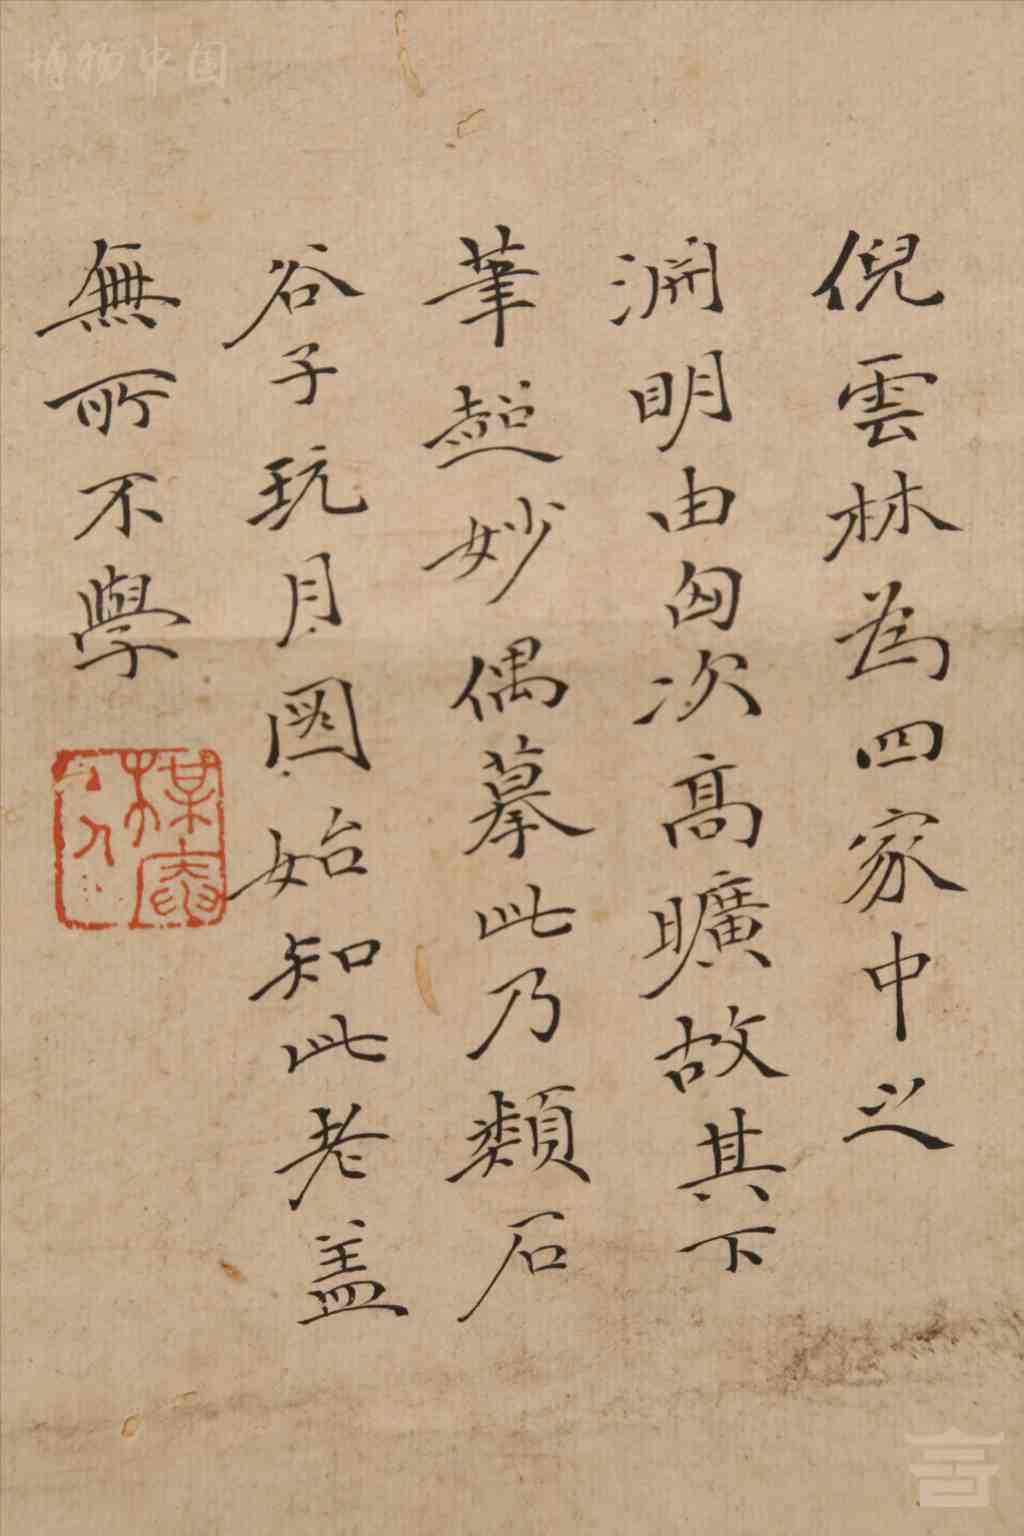 博物中国
倪雲林為四家中之
淵明由匈次高曠故其下
筆超妙偶摹此乃類石
谷子玩月圖始知此老盖
無所不學